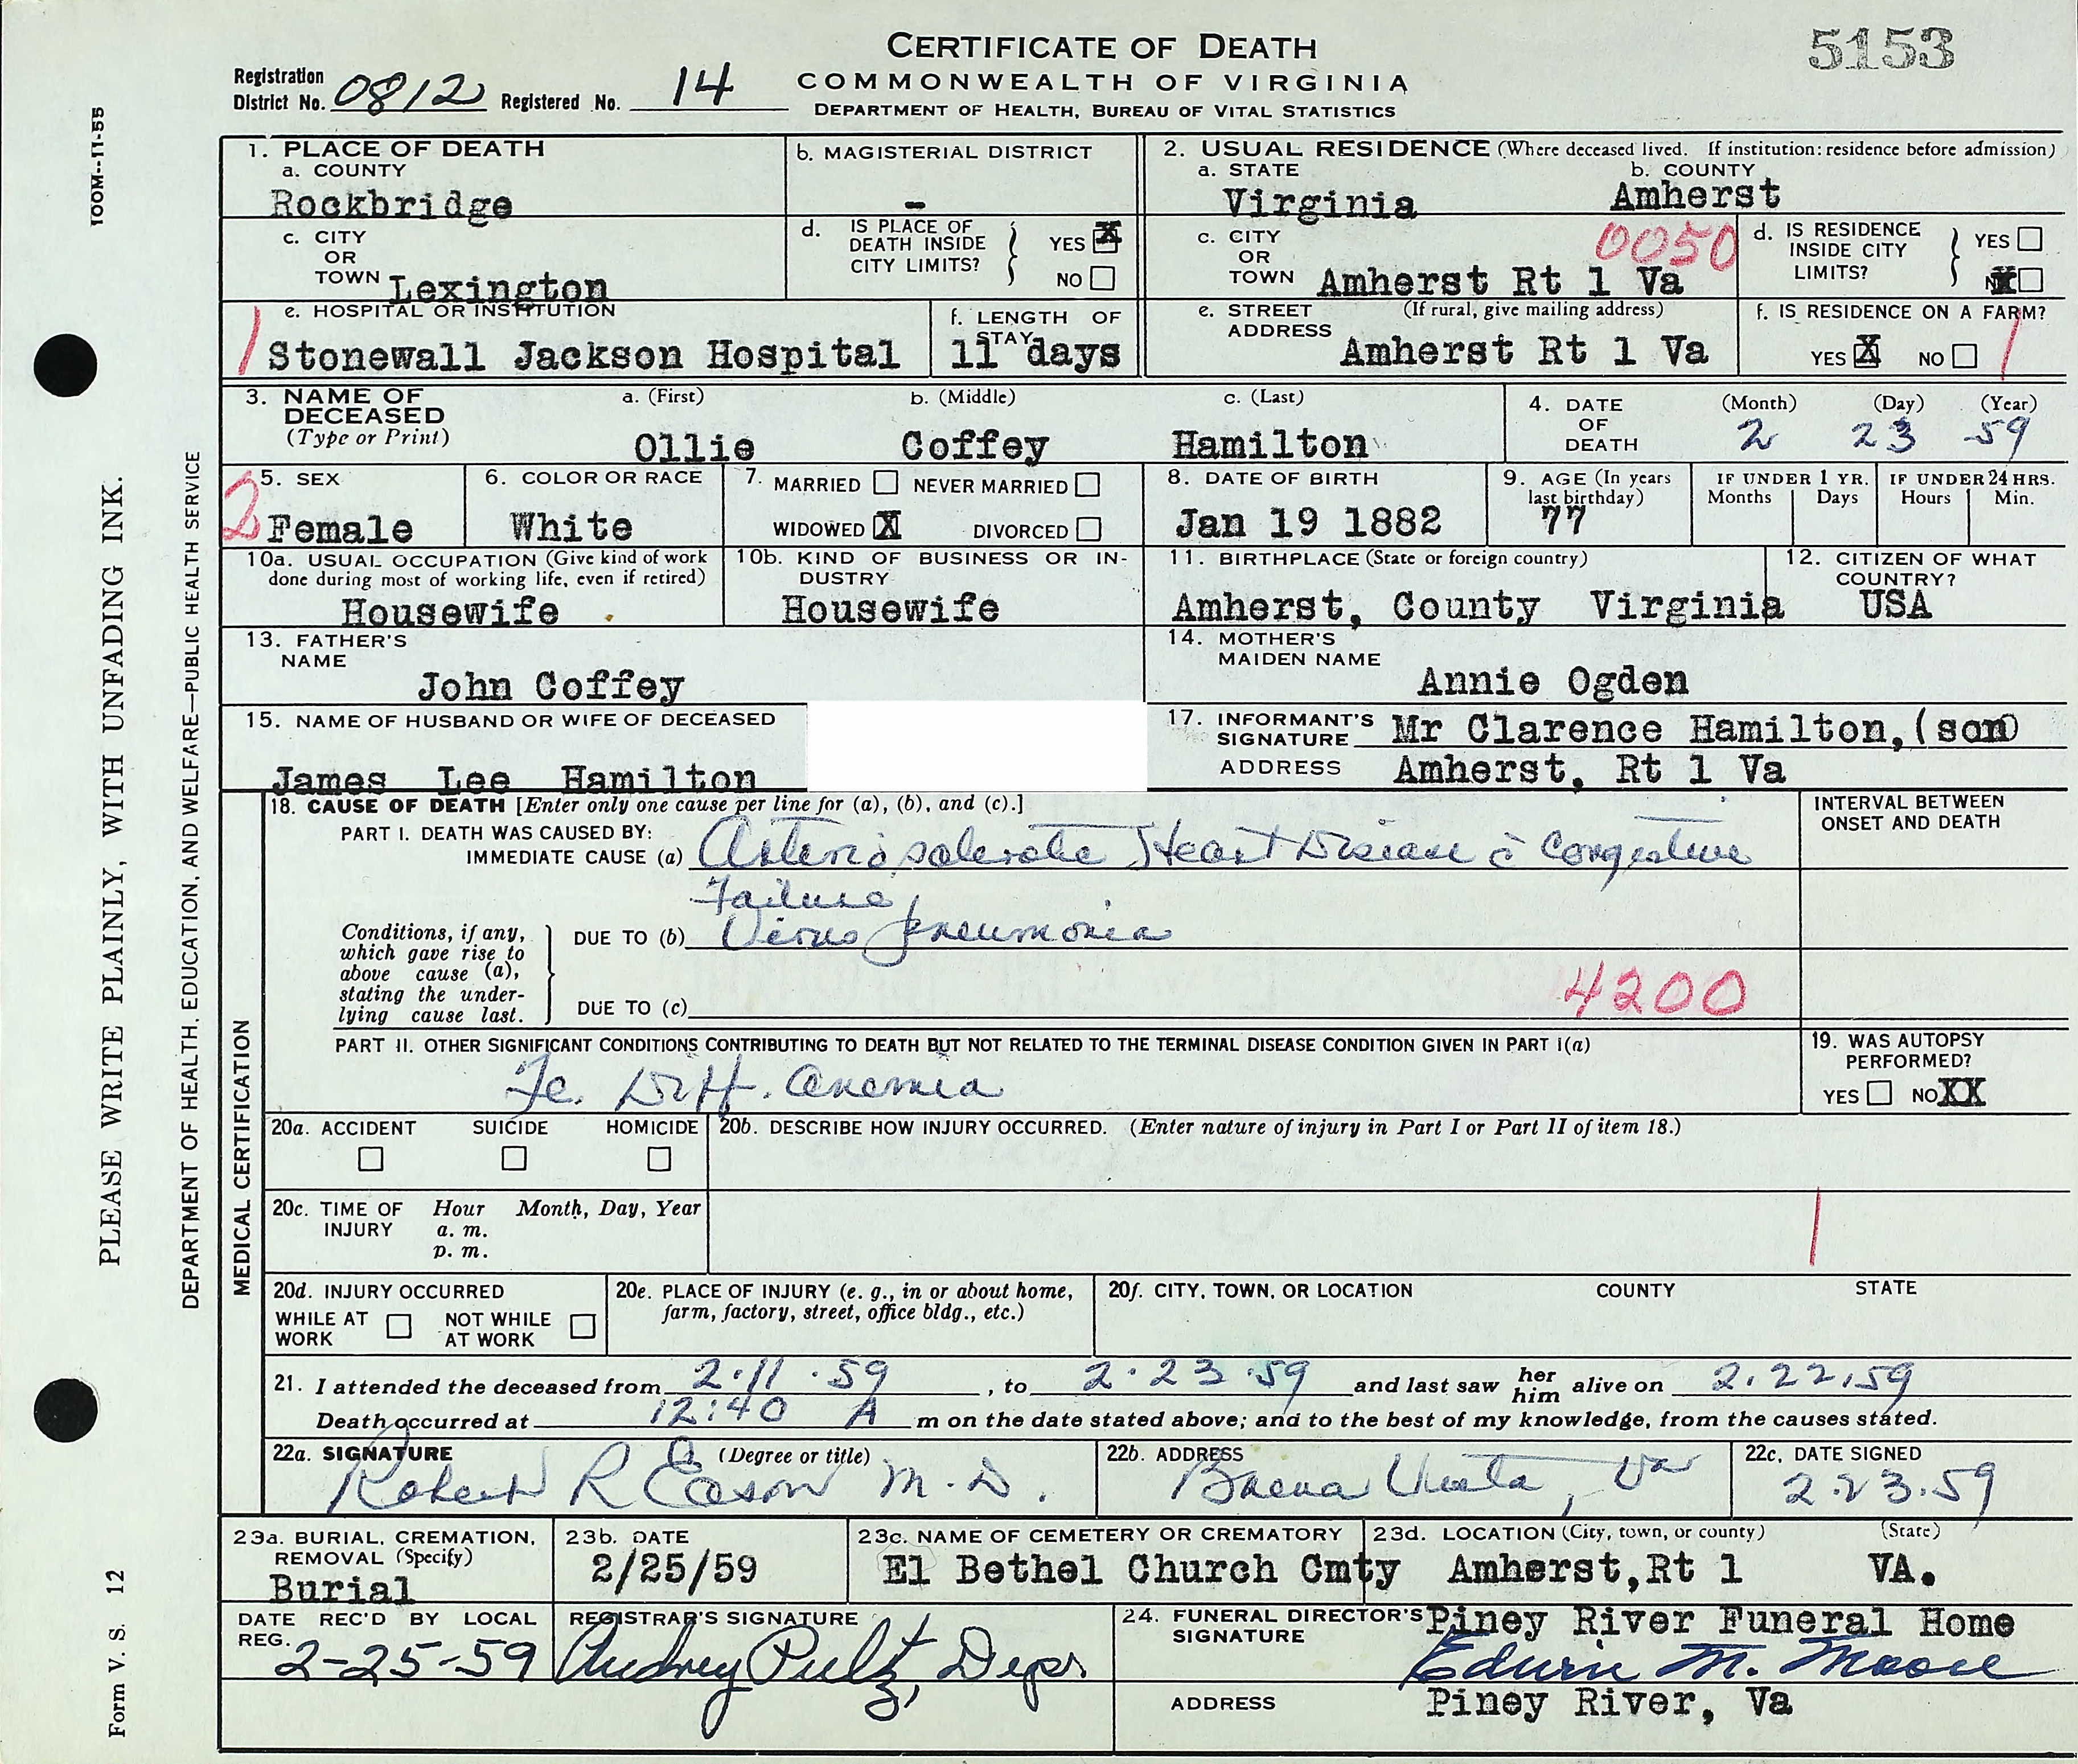 CERTIFICATE OF DEATH
5153
COMMONWEALTH OF VIRGINIA
DEPARTMENT OF HEALTH, BUREAU OF VITAL STATISTICS
Registration District No. 0812 Registered No. 14
100M--11-55
PLEASE WRITE PLAINLY, WITH UNFADING INK.
DEPARTMENT OF HEALTH, EDUCATION, AND WELFARE—PUBLIC HEALTH SERVICE
Form V. S. 12
1. PLACE OF DEATH
a. COUNTY
Rockbridge
b. MAGISTERIAL DISTRICT
-
c. CITY OR TOWN Lexington
d. IS PLACE OF DEATH INSIDE CITY LIMITS? YES X NO
e. HOSPITAL OR INSTITUTION
1 Stonewall Jackson Hospital
f. LENGTH OF STAY
11 days
2. USUAL RESIDENCE (Where deceased lived. If institution: residence before admission)
a. STATE
Virginia
b. COUNTY
Amherst
c. CITY OR TOWN Amherst Rt 1 Va
0050
d. IS RESIDENCE INSIDE CITY LIMITS? YES X
e. STREET ADDRESS (If rural, give mailing address)
Amherst Rt 1 Va
f. IS RESIDENCE ON A FARM?
YES X NO 1
3. NAME OF DECEASED (Type or Print)
a. (First) b. (Middle) c. (Last)
Ollie Coffey Hamilton
4. DATE OF DEATH
(Month) (Day) (Year)
2 23 59
5. SEX
2 Female
6. COLOR OR RACE
White
7. MARRIED NEVER MARRIED
WIDOWED X DIVORCED
8. DATE OF BIRTH
Jan 19 1882
9. AGE (In years last birthday)
77
IF UNDER 1 YR.
Months Days
IF UNDER 24 HRS.
Hours Min.
10a. USUAL OCCUPATION (Give kind of work done during most of working life, even if retired)
Housewife
10b. KIND OF BUSINESS OR INDUSTRY
Housewife
11. BIRTHPLACE (State or foreign country)
Amherst, County Virginia
12. CITIZEN OF WHAT COUNTRY?
USA
13. FATHER'S NAME
John Coffey
14. MOTHER'S MAIDEN NAME
Annie Ogden
15. NAME OF HUSBAND OR WIFE OF DECEASED
James Lee Hamilton
17. INFORMANT'S SIGNATURE Mr Clarence Hamilton, (son)
ADDRESS Amherst, Rt 1 Va
MEDICAL CERTIFICATION
18. CAUSE OF DEATH [Enter only one cause per line for (a), (b), and (c).]
INTERVAL BETWEEN ONSET AND DEATH
PART I. DEATH WAS CAUSED BY:
IMMEDIATE CAUSE (a) Arteriosclerotic Heart Disease c̄ Congestive
Failure
Conditions, if any, which gave rise to above cause (a), stating the underlying cause last.
DUE TO (b) Virus pneumonia
DUE TO (c)
4200
PART II. OTHER SIGNIFICANT CONDITIONS CONTRIBUTING TO DEATH BUT NOT RELATED TO THE TERMINAL DISEASE CONDITION GIVEN IN PART I(a)
Fe. Diff. anemia
19. WAS AUTOPSY PERFORMED?
YES NO XX
20a. ACCIDENT SUICIDE HOMICIDE
20b. DESCRIBE HOW INJURY OCCURRED. (Enter nature of injury in Part I or Part II of item 18.)
20c. TIME OF INJURY Hour Month, Day, Year
a. m.
p. m.
1
20d. INJURY OCCURRED
WHILE AT WORK NOT WHILE AT WORK
20e. PLACE OF INJURY (e. g., in or about home, farm, factory, street, office bldg., etc.)
20f. CITY, TOWN, OR LOCATION COUNTY STATE
21. I attended the deceased from 2.11.59, to 2.23.59 and last saw her him alive on 2.22.59
Death occurred at 12:40 A m on the date stated above; and to the best of my knowledge, from the causes stated.
22a. SIGNATURE (Degree or title)
Robert R Eason M.D.
22b. ADDRESS
Buena Vista, Va
22c. DATE SIGNED
2.23.59
23a. BURIAL, CREMATION, REMOVAL (Specify)
Burial
23b. DATE
2/25/59
23c. NAME OF CEMETERY OR CREMATORY
El Bethel Church Cmty
23d. LOCATION (City, town, or county) (State)
Amherst, Rt 1 VA.
DATE REC'D BY LOCAL REG.
2-25-59
REGISTRAR'S SIGNATURE
Audrey Pultz, Depr
24. FUNERAL DIRECTOR'S SIGNATURE
Piney River Funeral Home
Edwin M. Moore
ADDRESS Piney River, Va